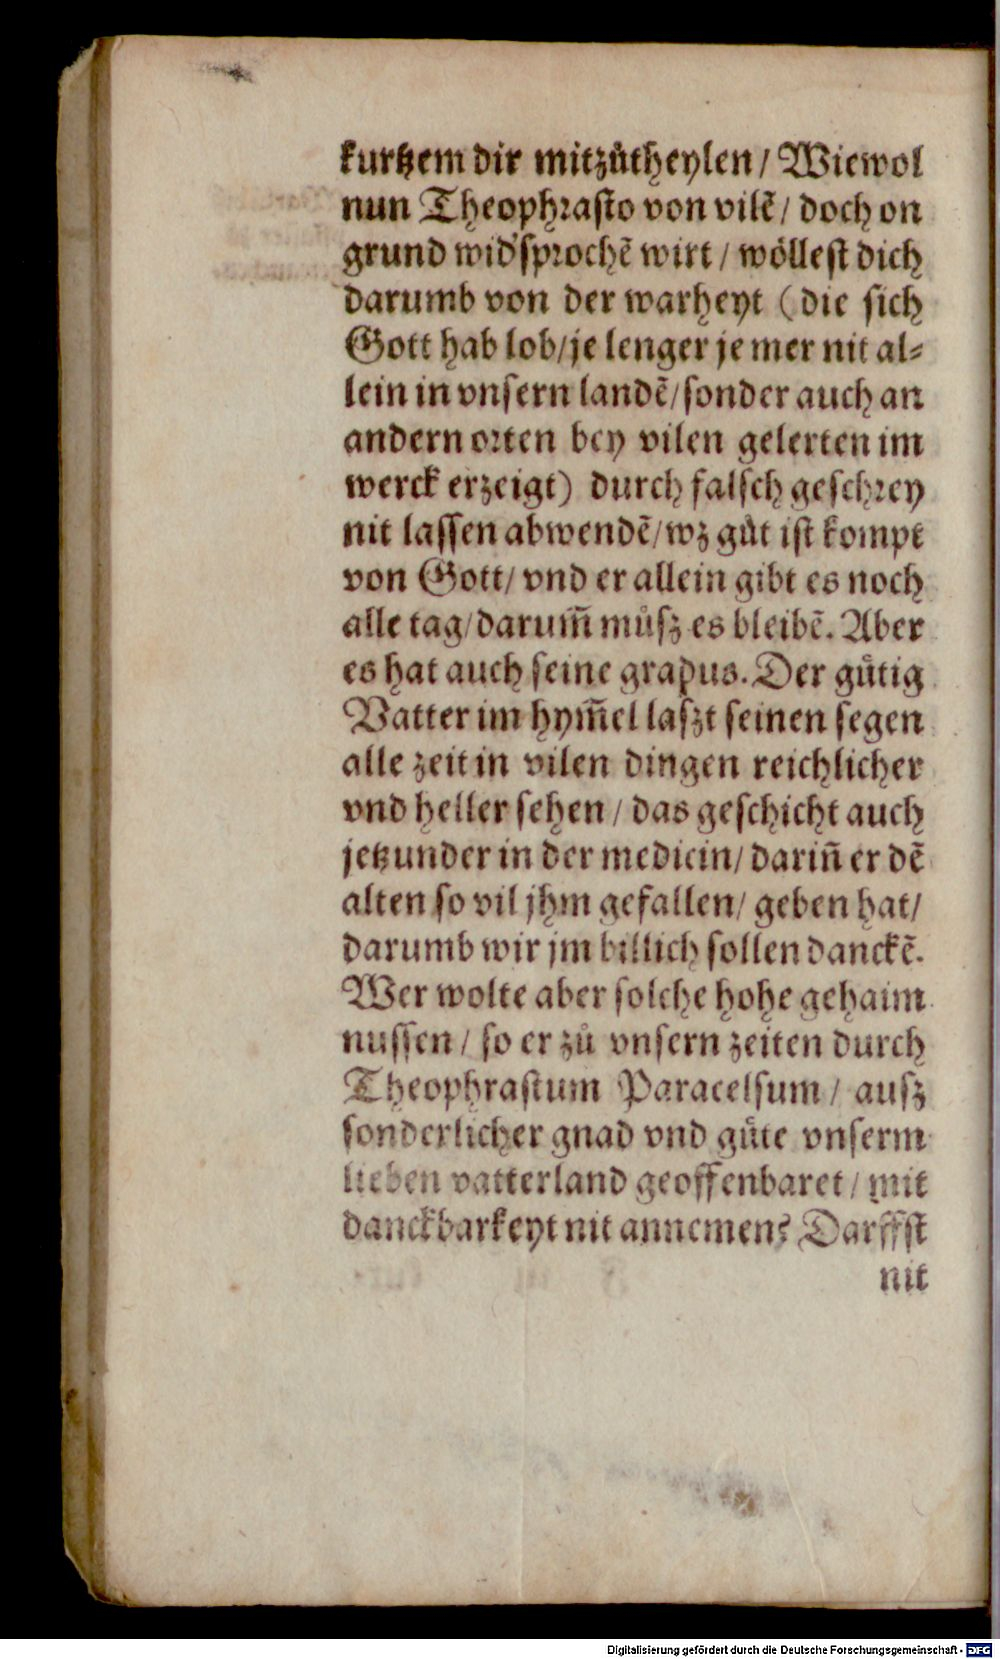 kurtzem dir mitzůtheylen / Wiewol
nun Theophrasto von vilẽ / doch on
grund wid'sprochẽ wirt / wöllest dich
darumb von der warheyt (die sich
Gott hab lob / je lenger je mer nit al⸗
lein in vnsern landẽ / sonder auch an
andern orten bey vilen gelerten im
werck erzeigt) durch falsch geschrey
nit lassen abwendẽ / wz gůt ist kompt
von Gott / vnd er allein gibt es noch
alle tag / darum̃ můsz es bleibẽ. Aber
es hat auch seine gradus. Der gütig
Vatter im hym̃el laszt seinen segen
alle zeit in vilen dingen reichlicher
vnd heller sehen / das geschicht auch
jetzunder in der medicin / dariñ er dẽ
alten so vil jhm gefallen / geben hat /
darumb wir jm billich sollen danckẽ.
Wer wolte aber solche hohe gehaim
nussen / so er zů vnsern zeiten durch
Theophrastum Paracelsum / ausz
sonderlicher gnad vnd güte vnserm
lieben vatterland geoffenbaret / mit
danckbarkeyt nit annemen? Darffst
nit
Digitalisierung gefördert durch die Deutsche Forschungsgemeinschaft - DFG